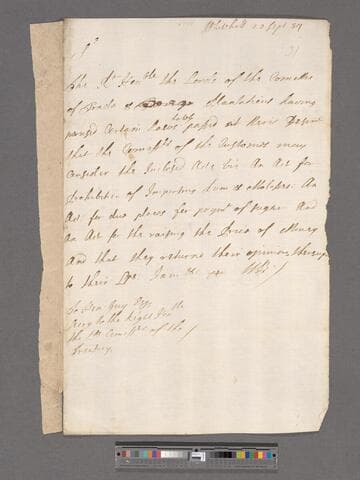 Whitehall 20 Sept. 87
Sr
The Rt. Honble. the Lords of the Comittee
of Trade & Plantations having
perused Certain Laws past at Nevis Desire
that the Comissrs. of the Customes may
Consider the Inclosed Acts viz An Act for
Prohibition of Importing Rum & Molasses. An
Act for due places for paymt. of Sugar And
an Act for the raising the Price of
And that they returne their opinions thereup
to their Lops. I am Sr. &c WB
To Hen Guy Esqr.
Secry to the Right Honble
the Lds. Comissrs. of the
Treasury.